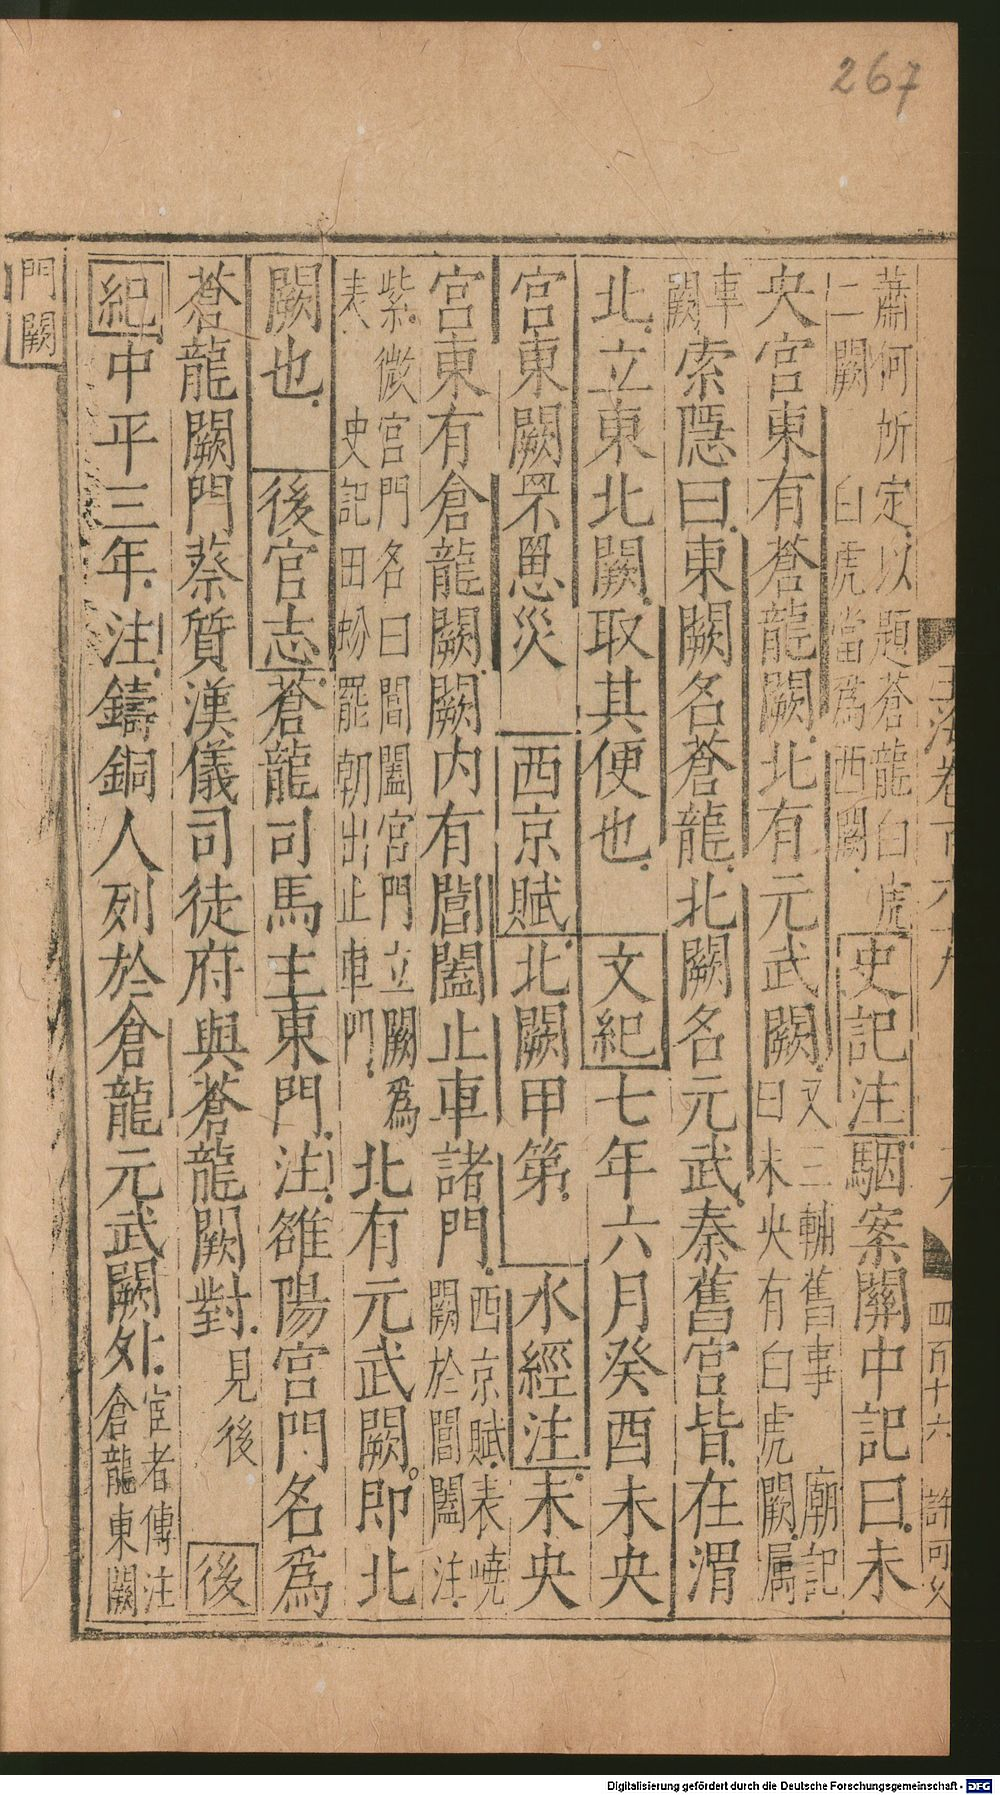 267
蕭何所定以題蒼龍白虎
二闕 白虎當爲西闕
史記注駰案關中記曰未
央宮東有蒼龍闕北有元武闕
又三輔舊事 廟記
曰未央有白虎闕屬
車
闕
索隱曰東闕名蒼龍北闕名元武秦舊宮皆在渭
北立東北闕取其便也 文紀七年六月癸酉未央
宮東闕罘罳災 西京賦北闕甲第 水經注未央
宮東有倉龍闕闕内有閶闔止車諸門
西京賦表嶢
闕於閶闔注
紫微宮門名曰閶闔宮門立闕爲
表 史記田蚡罷朝出止車門
北有元武闕即北
闕也 後官志蒼龍司馬主東門注雒陽宮門名爲
蒼龍闕門蔡質漢儀司徒府與蒼龍闕對見後 後
紀中平三年注鑄銅人列於倉龍元武闕外
宦者傳注
倉龍東闕
門闕
四百十六 許
Digitalisierung gefördert durch die Deutsche Forschungsgemeinschaft - DFG